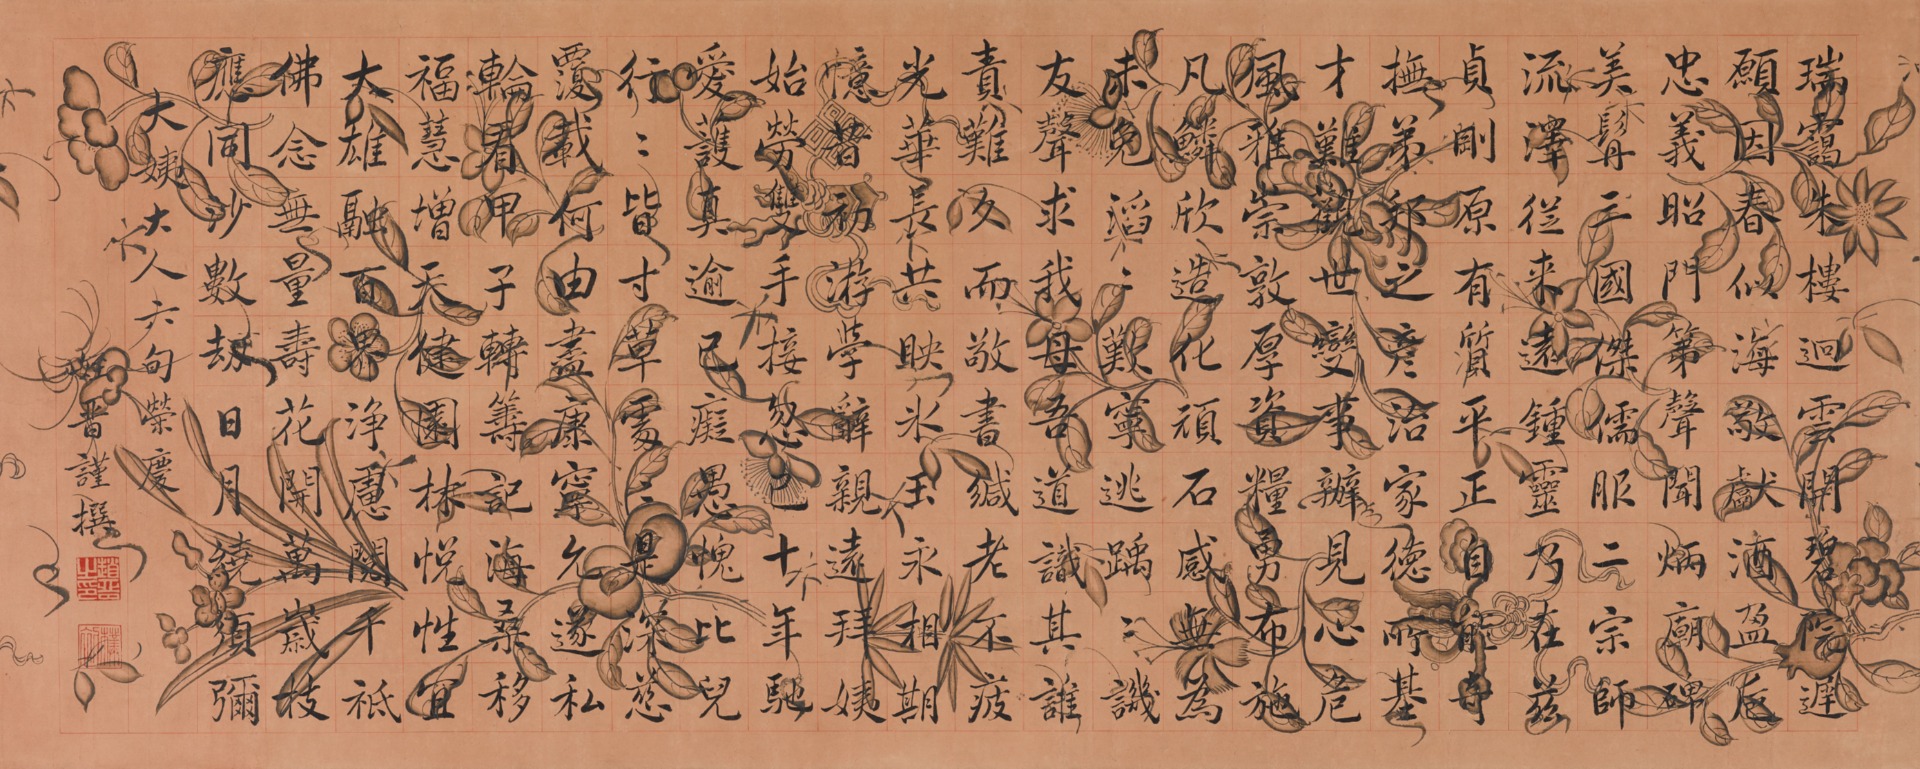 瑞靄朱樓迥雲開碧隂遲
願因春似海敬獻酒盈卮
忠義昭門第聲聞炳廟碑
美髯三國傑儒服二宗師
流澤從来遠鍾靈乃在兹
貞剛原有質平正自能奇
撫弟邦之彥治家德所基
才難觀世變事辦見心危
風雅崇敦厚資糧勇布施
凡鱗欣造化頑石感無為
未免滔〻歎寧逃踽〻譏
友聲求我母吾道識其誰
責難友而敬書緘老不疲
光華長共映氷玉永相期
憶昔初游學辭親遠拜姨
始勞雙手接忽已十年馳
愛護真逾己癡愚愧比兒
行〻皆寸草處〻是深慈
覆載何由盡康寧允遂私
輪看甲子轉籌記海桑移
福慧增天健園林悅性宜
大雄融百界淨慮闊千祗
佛念無量壽花開萬歲枝
應同沙數劫日月繞須彌
大姨大人六旬榮慶
姪晋謹撰